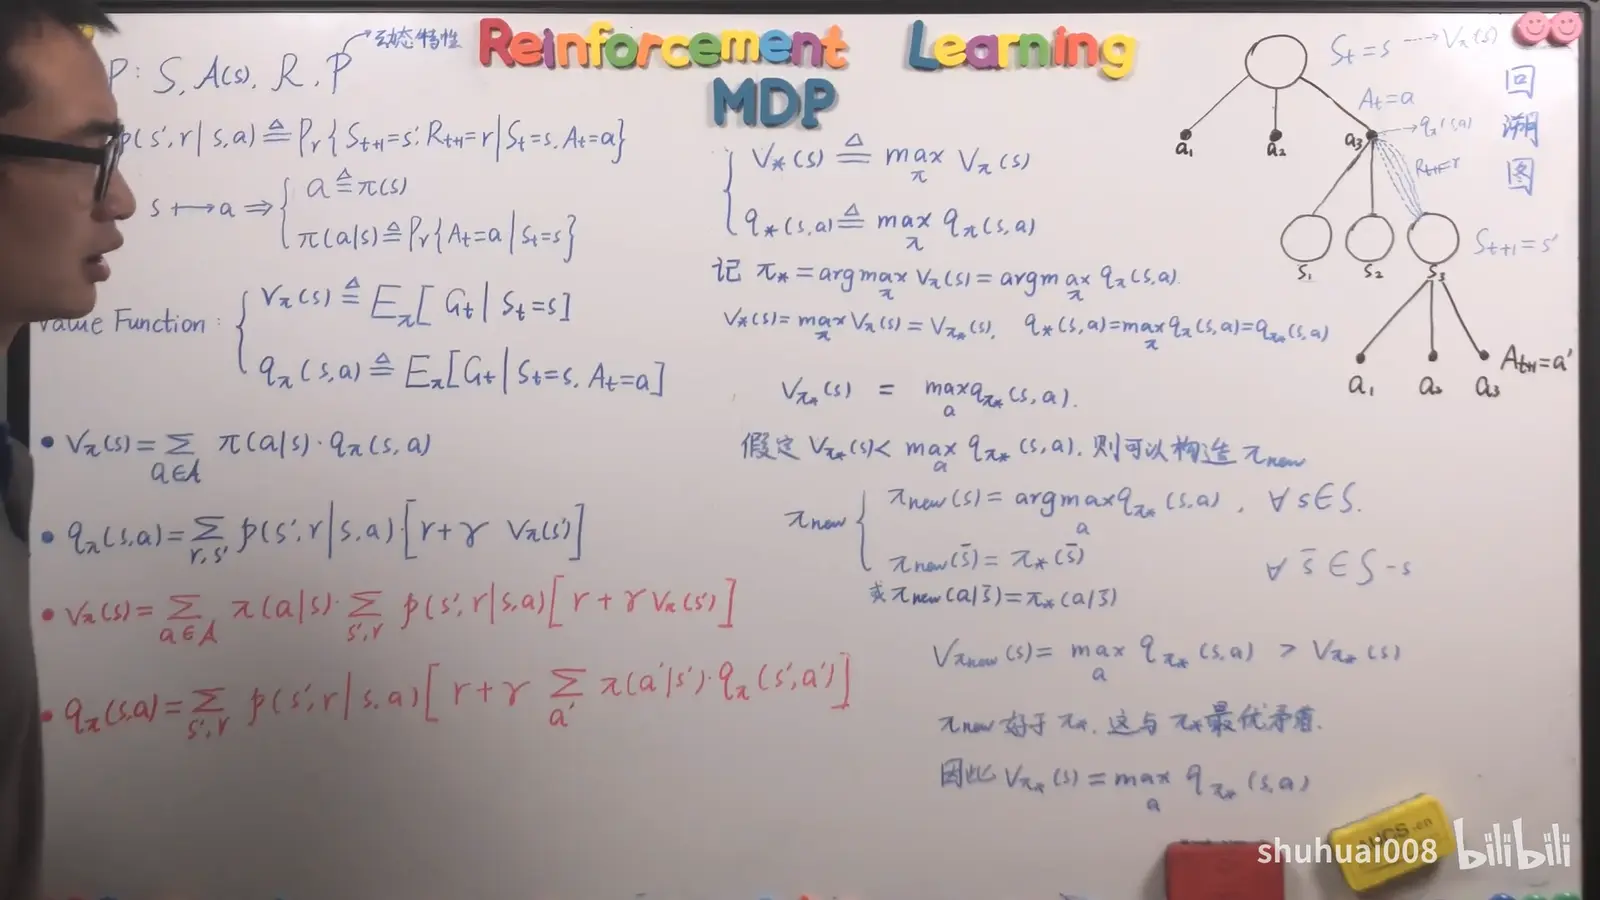 Reinforcement Learning
MDP
P: S, A(s), R, P → 动态特性
p(s',r|s,a) ≜ Pr{St+1=s', Rt+1=r|St=s, At=a}
s ⟼ a ⇒ { a ≜ π(s)
π(a|s) ≜ Pr{At=a|St=s}
Value Function: { Vπ(s) ≜ Eπ[Gt|St=s]
qπ(s,a) ≜ Eπ[Gt|St=s, At=a]
• Vπ(s) = Σ_{a∈A} π(a|s)·qπ(s,a)
• qπ(s,a) = Σ_{r,s'} p(s',r|s,a)·[r+γ Vπ(s')]
• Vπ(s) = Σ_{a∈A} π(a|s)·Σ_{s',r} p(s',r|s,a)[r+γVπ(s')]
• qπ(s,a) = Σ_{s',r} p(s',r|s,a)[r+γ Σ_{a'} π(a'|s')·qπ(s',a')]
{ V*(s) ≜ max_π Vπ(s)
q*(s,a) ≜ max_π qπ(s,a)
记 π* = argmax_π Vπ(s) = argmax_π qπ(s,a).
V*(s) = max_π Vπ(s) = Vπ*(s), q*(s,a) = max_π qπ(s,a) = qπ*(s,a)
Vπ*(s) = max_a qπ*(s,a).
假定 Vπ*(s) < max_a qπ*(s,a), 则可以构造 πnew
πnew { πnew(s) = argmax_a qπ*(s,a), ∀ s∈S.
πnew(s̄) = π*(s̄) ∀ s̄∈S-s
或 πnew(a|s̄) = π*(a|s̄)
Vπnew(s) = max_a qπ*(s,a) > Vπ*(s)
πnew 好于 π*, 这与 π* 最优矛盾.
因此 Vπ*(s) = max_a qπ*(s,a)
St=s → Vπ(s)
At=a
a1 a2 a3 → qπ(s,a)
Rt+1=r
St+1=s'
s1 s2 s3
At+1=a'
a1 a2 a3
回溯图
AUCS.cn
shuhuai008 bilibili